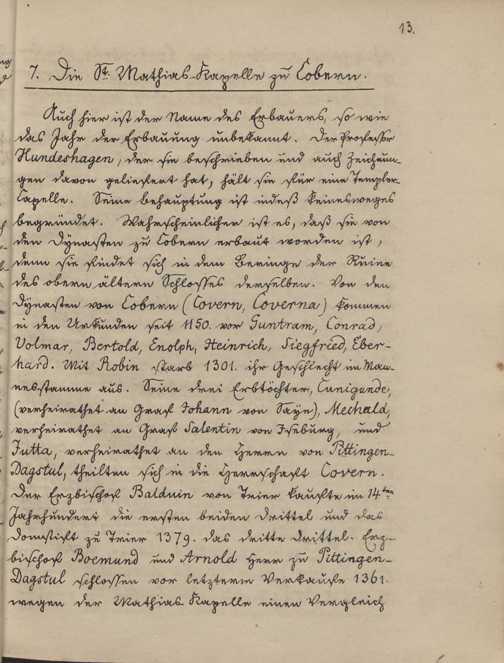 13.
7. Die St. Mathias-Kapelle zu Cobern.
Auch hier ist der Name des Erbauers, so wie
das Jahr der Erbauung unbekannt. Der Professor
Hundeshagen, der sie beschrieben und auch Zeichnun-
gen davon geliefert hat, hält sie für eine Templer-
Capelle. Seine Behauptung ist indeß keineswegs
begründet. Wahrscheinlicher ist es, daß sie von
den Dynasten zu Cobern erbaut worden ist,
denn sie findet sich in dem Beringe der Ruine
des obern, ältern Schlosses derselben. Von den
Dynasten von Cobern (Covern, Coverna) kommen
in den Urkunden seit 1150. vor Guntram, Conrad,
Volmar, Bertold, Enolph, Heinrich, Siegfried, Eber-
hard. Mit Robin starb 1301. ihr Geschlecht im Man-
nesstamme aus. Seine drei Erbtöchter, Cunigunde,
(verheirathet an Graf Johann von Sayn), Mechald,
verheirathet an Graf Salentin von Isenburg, und
Jutta, verheirathet an den Herrn von Pittingen-
Dagstul, theilten sich in die Herrschaft Covern.
Der Erzbischof Balduin von Trier kaufte im 14ten
Jahrhundert die ersten beiden Drittel und das
Domstift zu Trier 1379. das dritte Drittel. Erz-
bischof Boemund und Arnold Herr zu Pittingen-
Dagstul schlossen vor letzterm Verkaufe 1361.
wegen der Mathias-Kapelle einen Vergleich